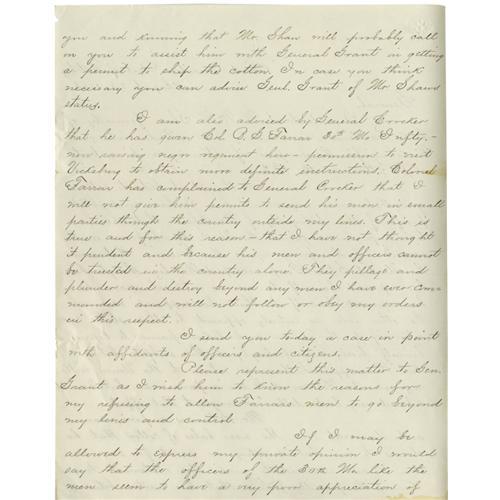 you and knowing that Mr. Shaw will probably call
on you to assist him with General Grant in getting
a permit to ship the cotton. In case you think
necessary you can advise Genl. Grant of Mr Shaws
status.
I am also advised by General Crocker
that he has given Col B. G. Farrar 30th Mo Infty,-
now raising negro regiment here - permission to visit
Vicksburg to obtain more definite instructions. Colonel
Farrar has complained to General Crocker that I
will not give him permits to send his men in small
parties through the country outside my lines. This is
true and for this reason - that I have not thought
it prudent and because his men and officers cannot
be trusted in the country alone. They pillage and
plunder and destroy beyond any men I have ever com
manded and will not follow or obey my orders
in this respect.
I send you today a case in point
with affidavits of officers and citizens.
Please represent this matter to Gen.
Grant as I wish him to know the reasons for
my refusing to allow Farrars men to go beyond
my lines and control.
If I may be
allowed to express my private opinion I would
say that the officers of the 30th Mo like the
men seem to have a very poor appreciation of